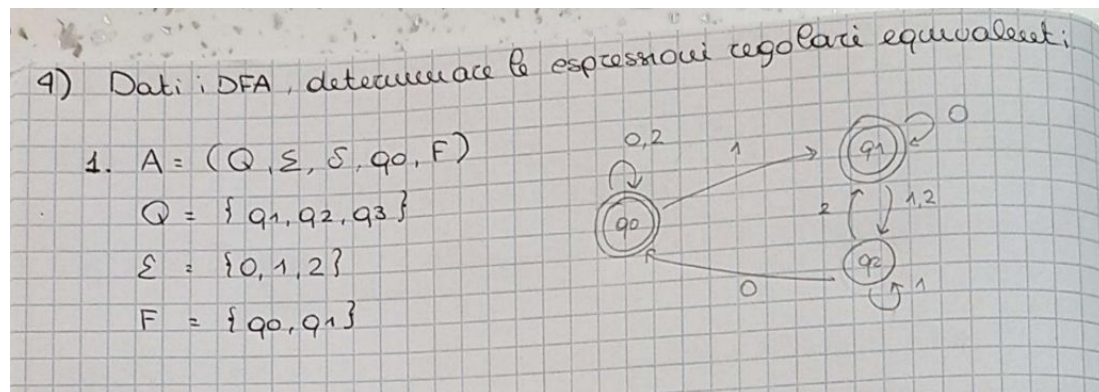 4) Dati i DFA, determinare le espressioni regolari equivalenti:
1. A = (Q, Σ, δ, q0, F)
Q = {q1, q2, q3}
Σ = {0, 1, 2}
F = {q0, q1}
0,2
1
0
q0
q1
2
1,2
q2
0
1